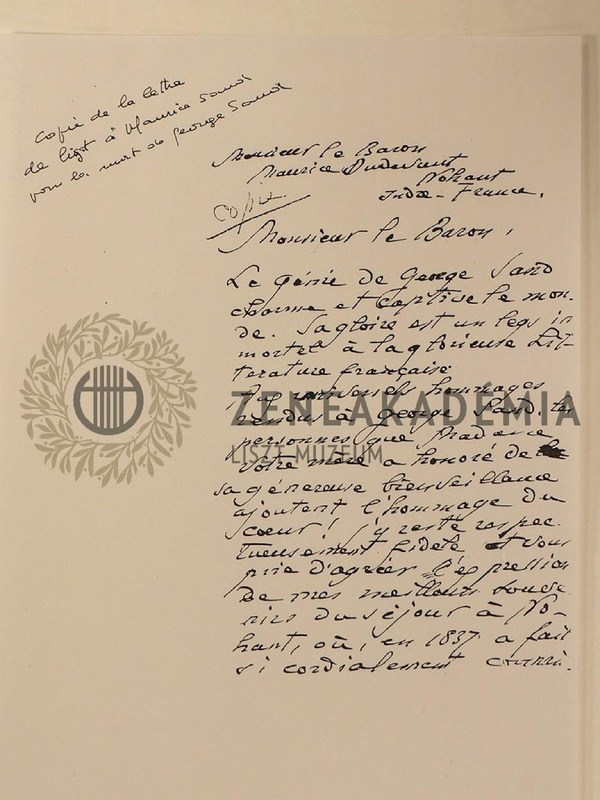 Copie de la lettre
de Liszt à Maurice Sand
pour la mort de George Sand
Monsieur le Baron
Maurice Dudevant
Nohant
Indre - France.
Copie.
Monsieur le Baron,
Le génie de George Sand
charme et captive le mon-
de. Sa gloire est un legs im
mortel à la glorieuse Lit-
térature française.
Aux universels hommages
rendus à George Sand, les
personnes que Madame
votre mère a honoré de
sa généreuse bienveillance
ajoutent l'hommage du
coeur! J'y reste respec-
tueusement fidèle et vous
prie d'agréer l'expression
de mes meilleurs souve
nirs du séjour à No-
hant, où, en 1837 a fait
si cordialement
ZENEAKADÉMIA
LISZT MÚZEUM